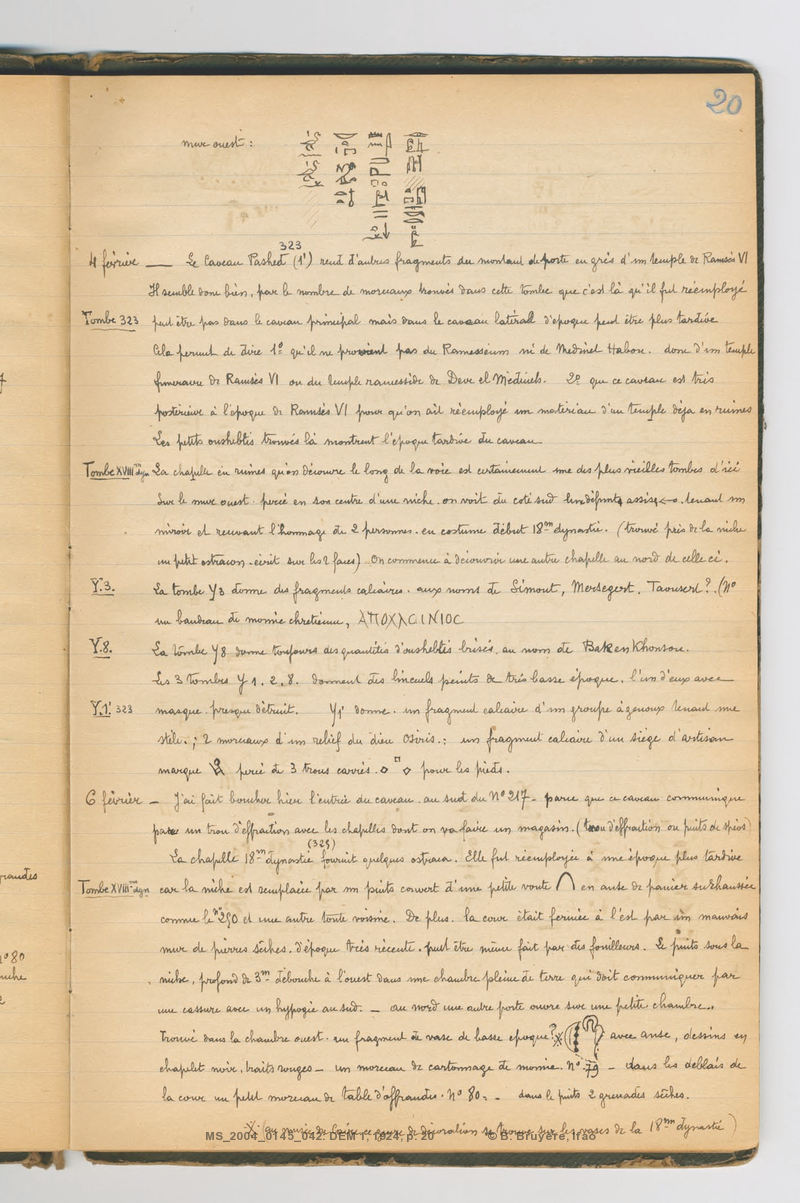 20
mur ouest :
323
4 février — Le Caveau Pashed (1') rend d'autres fragments du montant de porte en grès d'un temple de Ramsès VI
Il semble donc bien, par le nombre de morceaux trouvés dans cette tombe que c'est là qu'il fut réemployé
Tombe 323 peut être pas dans le caveau principal mais dans le caveau latéral d'époque peut être plus tardive
Cela permet de dire 1º qu'il ne provient pas du Ramesseum ni de Medinet Habou. donc d'un temple
funeraire de Ramsès VI ou du temple ramesside de Deir el Medineh. 2º que ce caveau est très
postérieur à l'époque de Ramsès VI pour qu'on ait réemployé un matériau d'un temple déja en ruines
Les petits oushebtis trouvés là montrent l'époque tardive du caveau
Tombe XVIIIme dyn. La chapelle en ruines qu'on découvre le long de la voie est certainement une des plus vieilles tombes d'ici
Sur le mur ouest percé en son centre d'une niche. on voit du coté sud assis tenant un
miroir et recevant l'hommage de 2 personnes. en costume début 18me dynastie. (trouvé près de la niche
un petit ostracon. écrit sur les 2 faces) On commence à découvrir une autre chapelle au nord de celle ci.
Y.3. La tombe Y3 donne des fragments calcaires. aux noms de Simout, Mersegert, Taousert ?. (Nº
un bandeau de momie chretienne, ΑΠΟΧΛCΙΝΙΟC
Y.8. La tombe Y8 donne toujours des quantités d'oushebtis brisés. au nom de BakenKhonsou.
Les 3 tombes Y 1. 2. 8. donnent des linceuls peints de très basse époque. l'un d'eux avec
Y.1' 323 masque presque détruit. Y1' donne. un fragment calcaire d'un groupe à genoux tenant une
stèle. ; 2 morceaux d'un relief du dieu Osiris. ; un fragment calcaire d'un siège d'artisan
marque percé de 3 trous carrés. pour les pieds.
6 février — J'ai fait boucher hier l'entrée du caveau. au sud du Nº 217. parce que ce caveau communique
par un trou d'effraction avec les chapelles dont on va faire un magasin. (trou d'effraction ou puits de spéos)
(325)
La chapelle 18me dynastie fournit quelques ostraca. Elle fut réemployée à une époque plus tardive
Tombe XVIIIme dyn car la niche est remplacée par un puits couvert d'une petite voute en anse de panier surhaussée
comme le nº 290 et une autre toute voisine. De plus. la cour était fermée à l'est par un mauvais
mur de pierres sèches. d'époque très récente. peut être même fait par des fouilleurs. Le puits sous la
niche, profond de 3m débouche à l'ouest dans une chambre pleine de terre qui doit communiquer par
une cassure avec un hypogée au sud. — au nord une autre porte ouvre sur une petite chambre..
Trouvé dans la chambre ouest. un fragment de vase de basse époque ? avec anse, dessins en
chapelet noir, traits rouges — un morceau de cartonnage de momie. Nº 79 — dans les déblais de
la cour un petit morceau de table d'offrandes. Nº 80. - dans le puits 2 grenades sèches.
au musée du Caire ce genre de décoration se trouve sur les vases de la 18me dynastie)
MS_2004_0145_042. DEM 1, 1924, p. 20 © B. Bruyère, Ifao
randes
nº 80